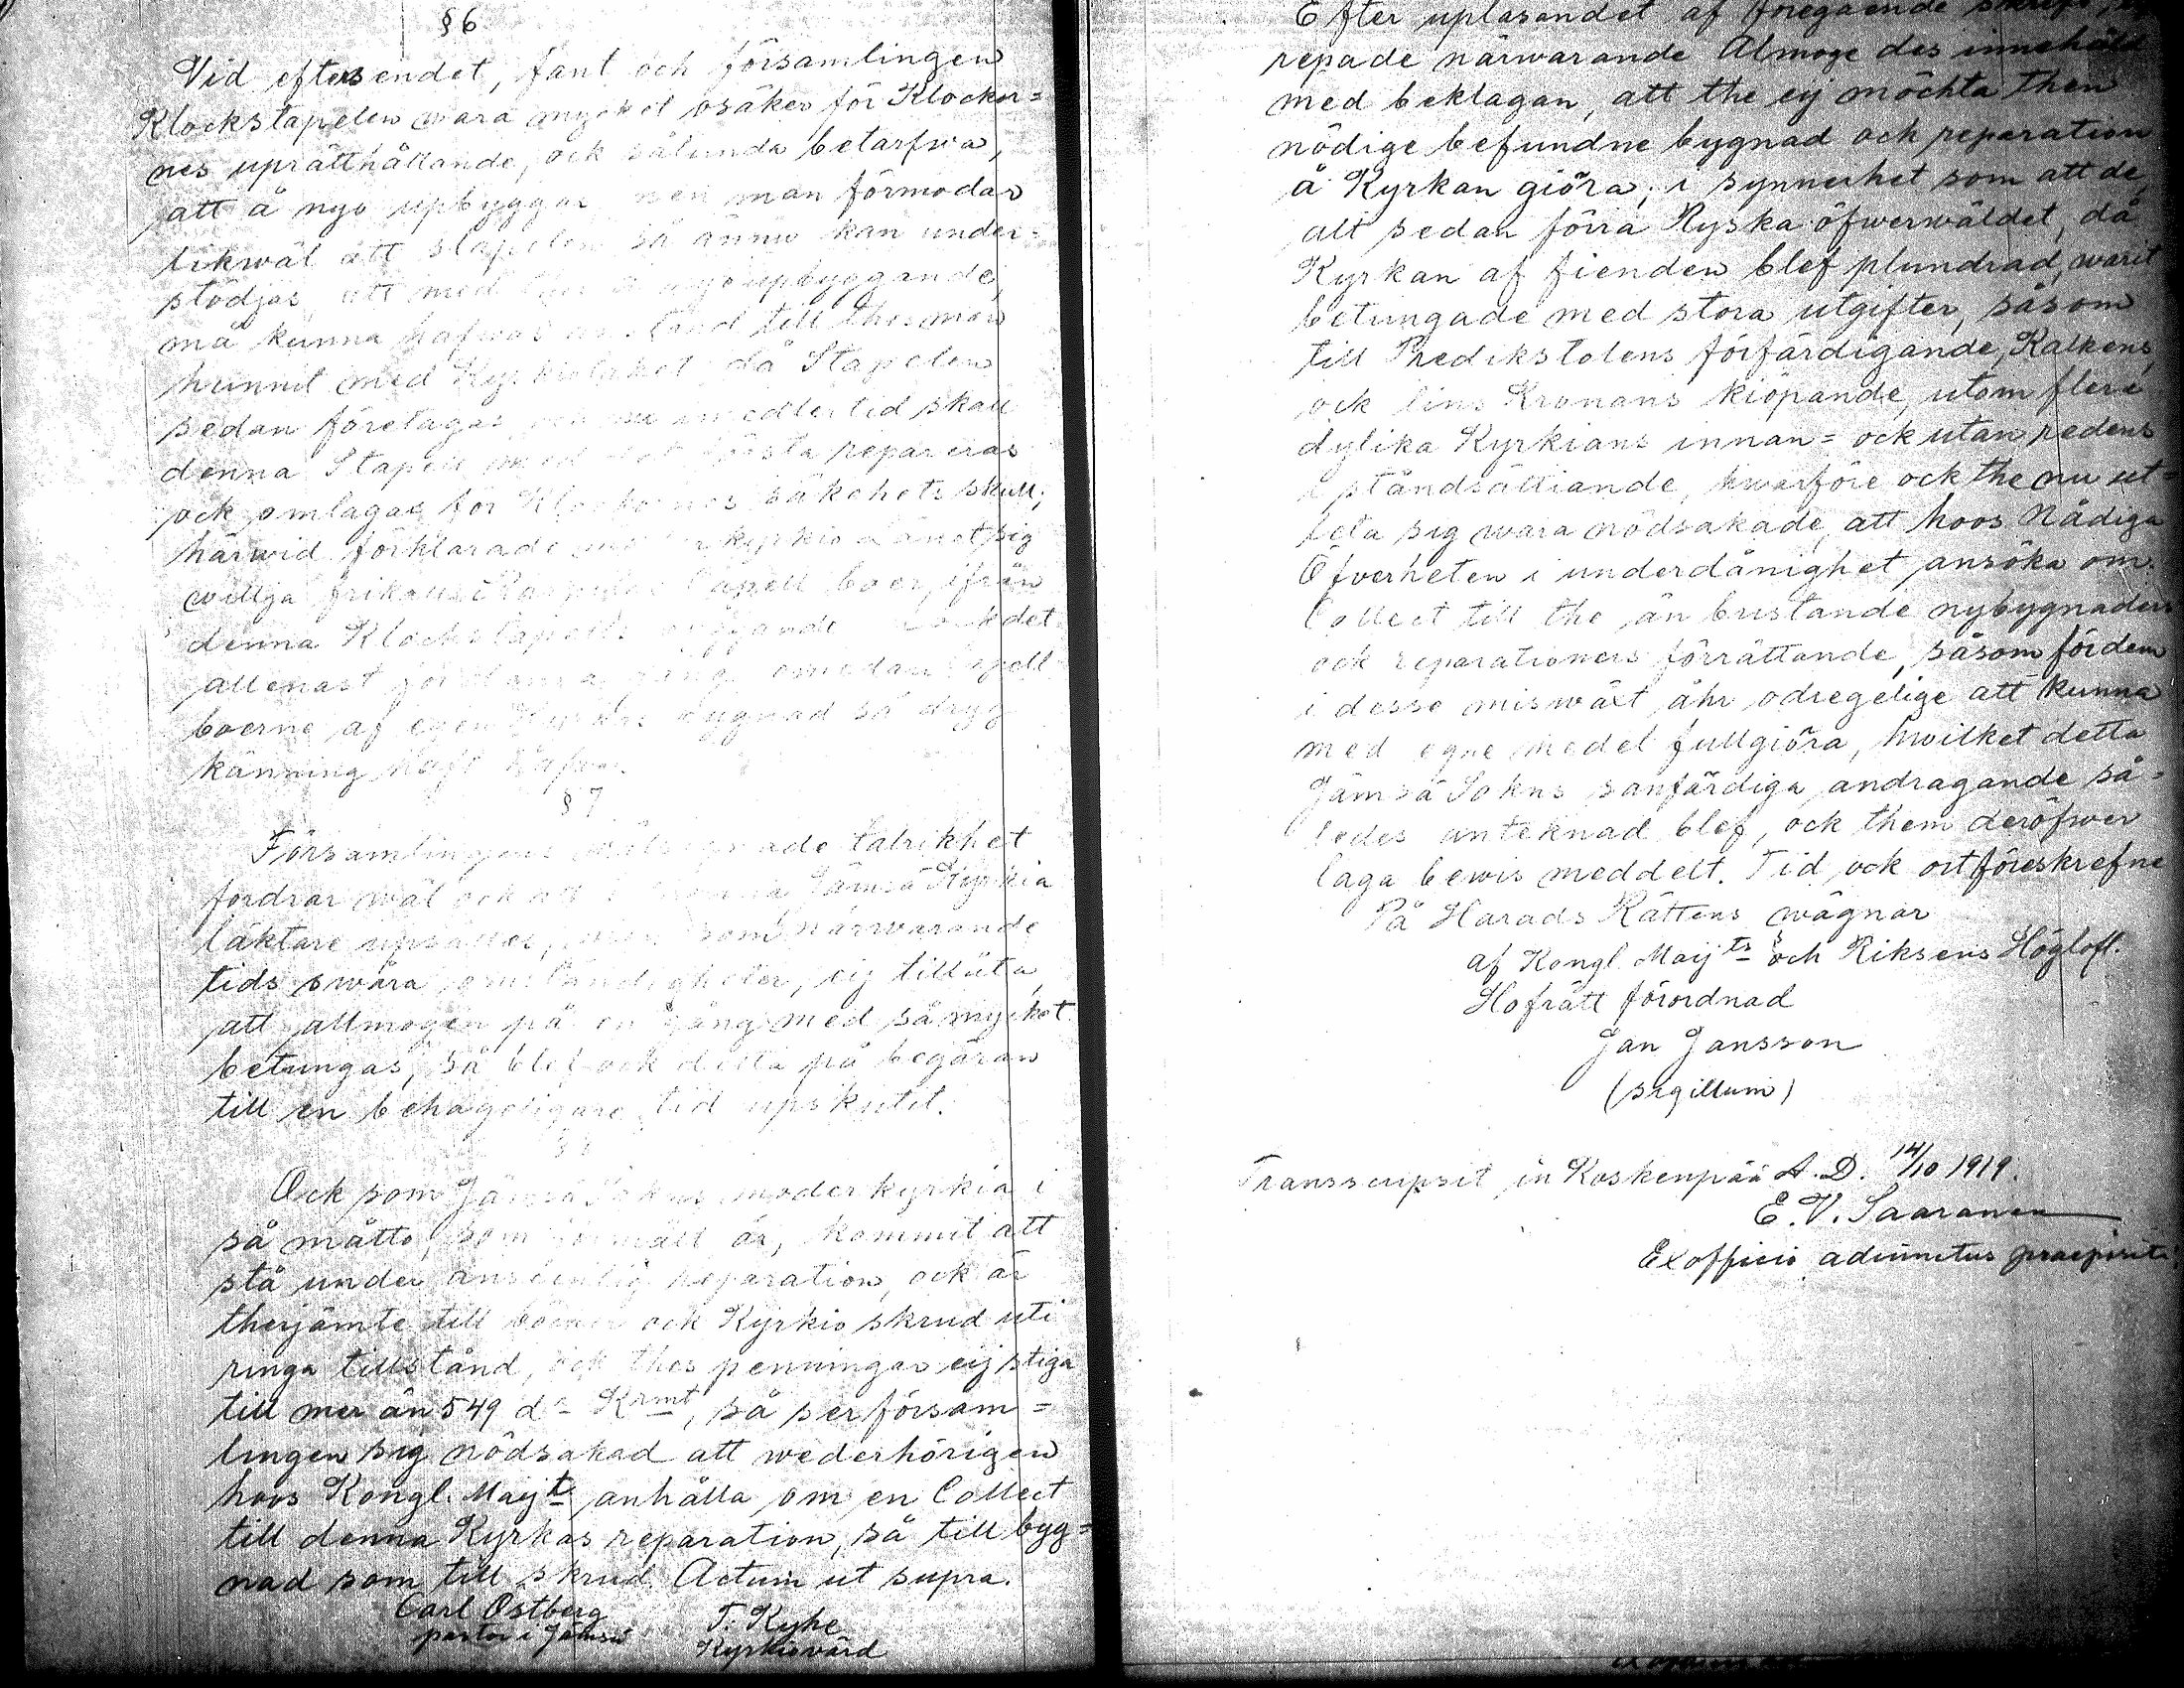 § 6
Vid eftersendet, fant och församlingen
Klockstapelen wara mycket osäker för Klocker=
nes uprätthållande, ock sålunda betarfwa,
att å nyo upbyggas men man förmodar
likwäl att stapelen så ännu kan under=
stödjas att med upbyggande,
må kunna till thes man
hunnit med Kyrkiotaket då Stapelen
sedan företagas imedlertid skall
denna Stapell med det första repareras
ock omlagas för Klockornes säkehets skull;
härwid förklarade sig
willja boer, ifrån
denna Klockstapells byggande det
allenast för denna gång emedan Capell
boerne af egen Kyrkio bygnad så dryg
känning haft hafwa.
§ 7
Församlingens talrikhet
fordrar wäl ock att Jämsä Kyrkia
läktare upsättes, men som närwarande
tids swåra omständigheter, eij tillåta,
att allmogen på en gång med så mycket
betungas, så blef ock detta på begäran
till en behageligare tid upskutit.
Ock som Jämsä Sokns moderkyrkia i
så måtto, som förmält är, kommit att
stå under ansenlig reparation, ock är
therjämte till böcker ock Kyrkio skrud uti
ringa tillstånd, ock thes penningar eij stiga
till mer än 549 dr Krmt, så ser försam=
lingen sig nödsakad att wederhörigen
hoos Kongl. Maijt anhålla om en Collect
till denna Kyrkas reparation, så till byg=
nad som till skrud. Actum ut supra.
Carl Östberg T. Kyhe
pastor i Jämsä Kyrkiovärd
Efter upläsandet af föregående
repade närwarande Almoge des innehåld
med beklagan, att the eij möchta then
nödige befundne bygnad ock reparation
å Kyrkan giöra; i synnerhet som att de
alt sedan förra Ryska öfwerwäldet, då
Kyrkan af fienden blef plundrad, warit
betungade med stora utgifter, såsom
till Predikstolens förfärdigande, Kalkens
ock lius Kronans kiöpande, utom flere
dylika Kyrkians innan= ock utan redens
i ståndsättiande, hwarföre ock the nu ut=
leta sig wara nödsakade, att hoos Nådiga
Öfverheten i underdånighet ansöka om
Collect till the än bristande nybygnaden
ock reparationers förrättande, såsom för dem
i desse miswäxt åhr odregelige att kunna
med egne medel fullgiöra, hwilket detta
Jämsä Sokns sanfärdiga andragande så=
ledes anteknad blef, ock them deröfwer
laga bewis meddelt. Tid ock ort föreskrefne
På Härads Rättens wägnar
af Kongl. Maijts och Riksens Höglofl.
Hofrätt förordnad
Jan Jansson
(sigillum)
Transscripsit in Koskenpää A.D. 14/10 1919.
E. V. Saaranen
Ex officio adiunctus praeposit